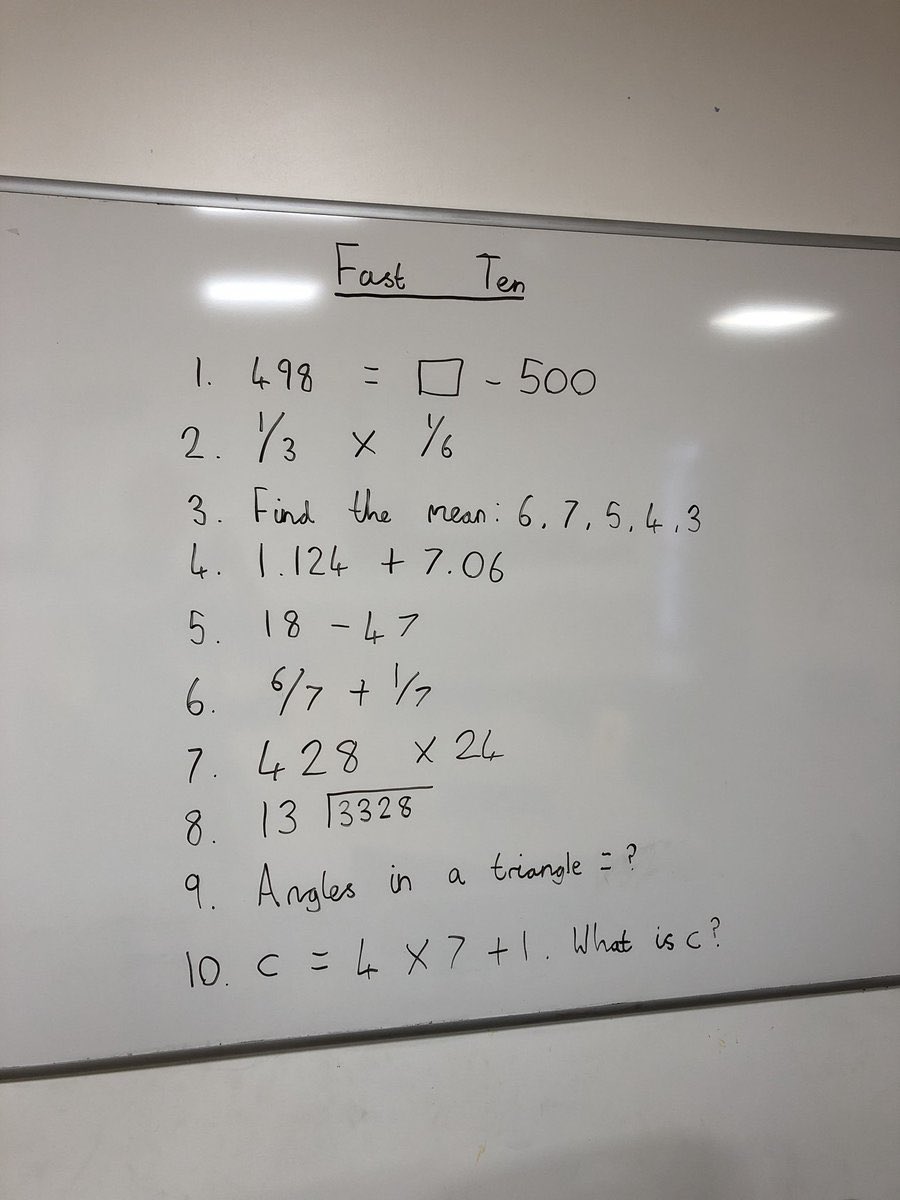 Fast Ten
1. 498 = □ - 500
2. 1/3 x 1/6
3. Find the mean: 6, 7, 5, 4, 3
4. 1.124 + 7.06
5. 18 - 47
6. 6/7 + 1/7
7. 428 x 24
8. 13 3328
9. Angles in a triangle = ?
10. c = 4 x 7 + 1. What is c?